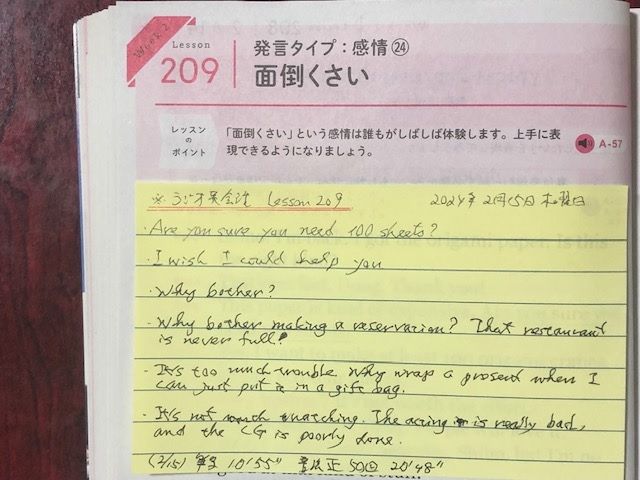 Week 2
Lesson
209
発言タイプ：感情㉔
面倒くさい
レッスン
の
ポイント
「面倒くさい」という感情は誰もがしばしば体験します。上手に表
現できるようになりましょう。
A-57
※ ラジオ英会話 Lesson 209 2024年2月15日木曜日
・Are you sure you need 100 sheets?
・I wish I could help you
・Why bother?
・Why bother making a reservation? That restaurant
is never full!
・It's too much trouble. Why wrap a present when I
can just put it in a gift bag.
・It's not worth watching. The acting is really bad,
and the CG is poorly done.
(2/15) 10'55" 50回 20'48"